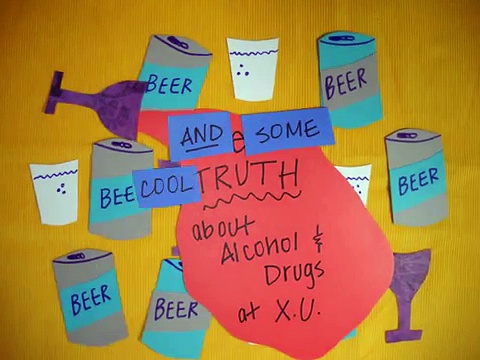 BEER
BEER
AND SOME
e
BEE
COOL
TRUTH
BEER
about
Alcohol &
Drugs
at X.U.
BEER
BEER